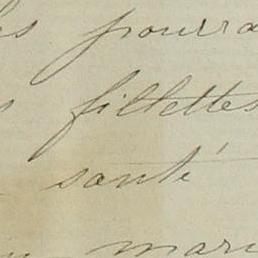 es pourra
s fillettes
santé
mari